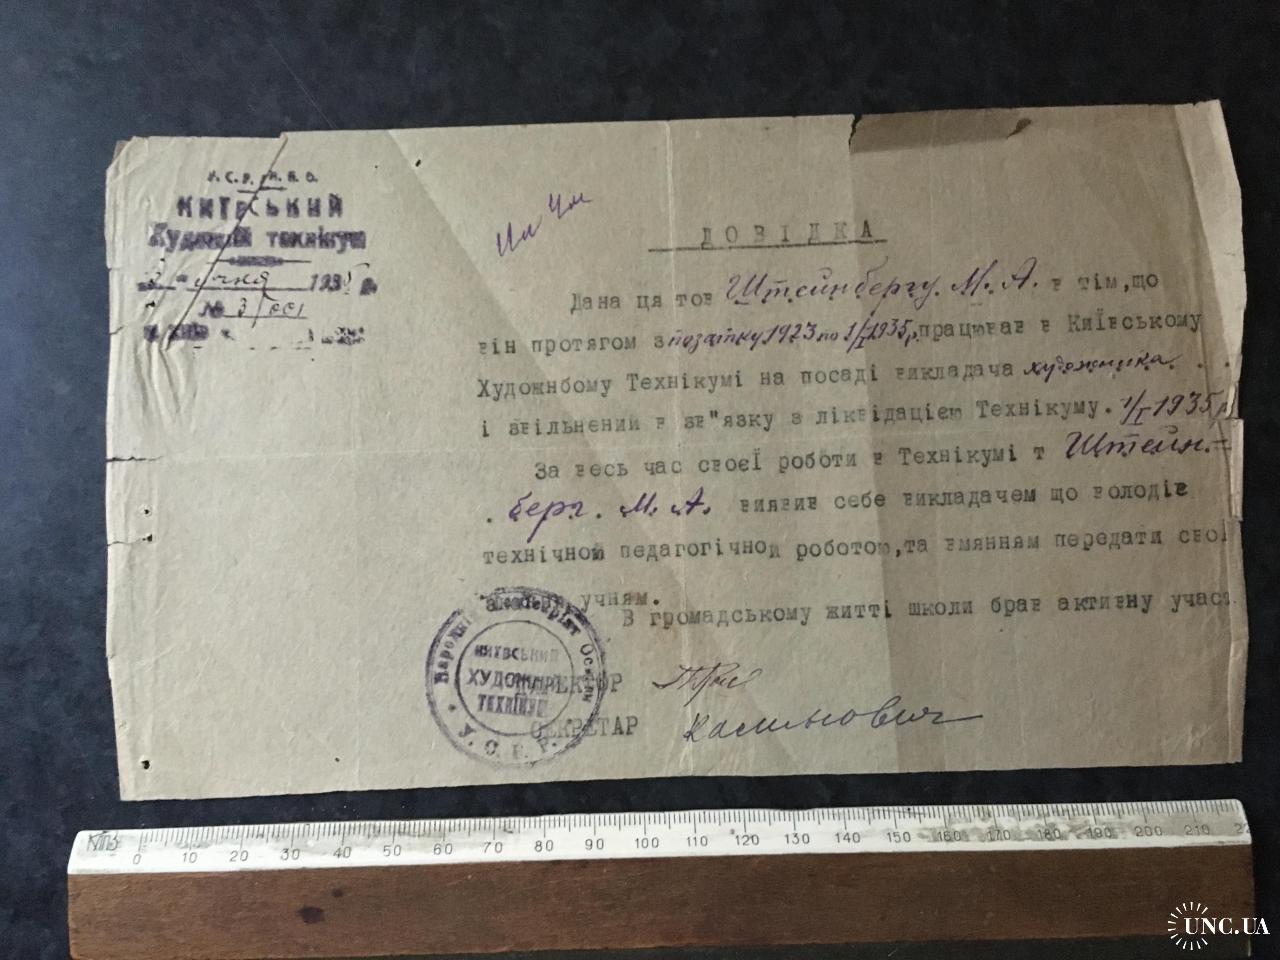 У.С.Р.Р. Н.К.О.
КИЇВСЬКИЙ
Художній технікум
січня 1935 р.
№ 3/
м. Київ
ДОВІДКА
Дана ця тов Штейнбергу М. А. в тім, що
він протягом з початку 1923 по 1/I 1935 р. працював в Київському
Художнбому Технікумі на посаді викладача художника . .
і звільнений в зв"язку з ліквідацією Технікуму. 1/I 1935 р
За весь час своєї роботи в Технікумі т Штейн. =
. берг. М. А. виявив себе викладачем що володів
технічною педагогічною роботою, та вмянням передати свої
учням.
В громадському житті школи брав активну участ
ДИРЕКТОР
СЕКРЕТАР Калинович
Народній Комісаріят Освіти
У. С. Р. Р.
КИЇВСЬКИЙ
ХУДОЖНІЙ
ТЕХНІКУМ
0 10 20 30 40 50 60 70 80 90 100 110 120 130 140 150 160 170 180 190 200 210 22
UNC.UA